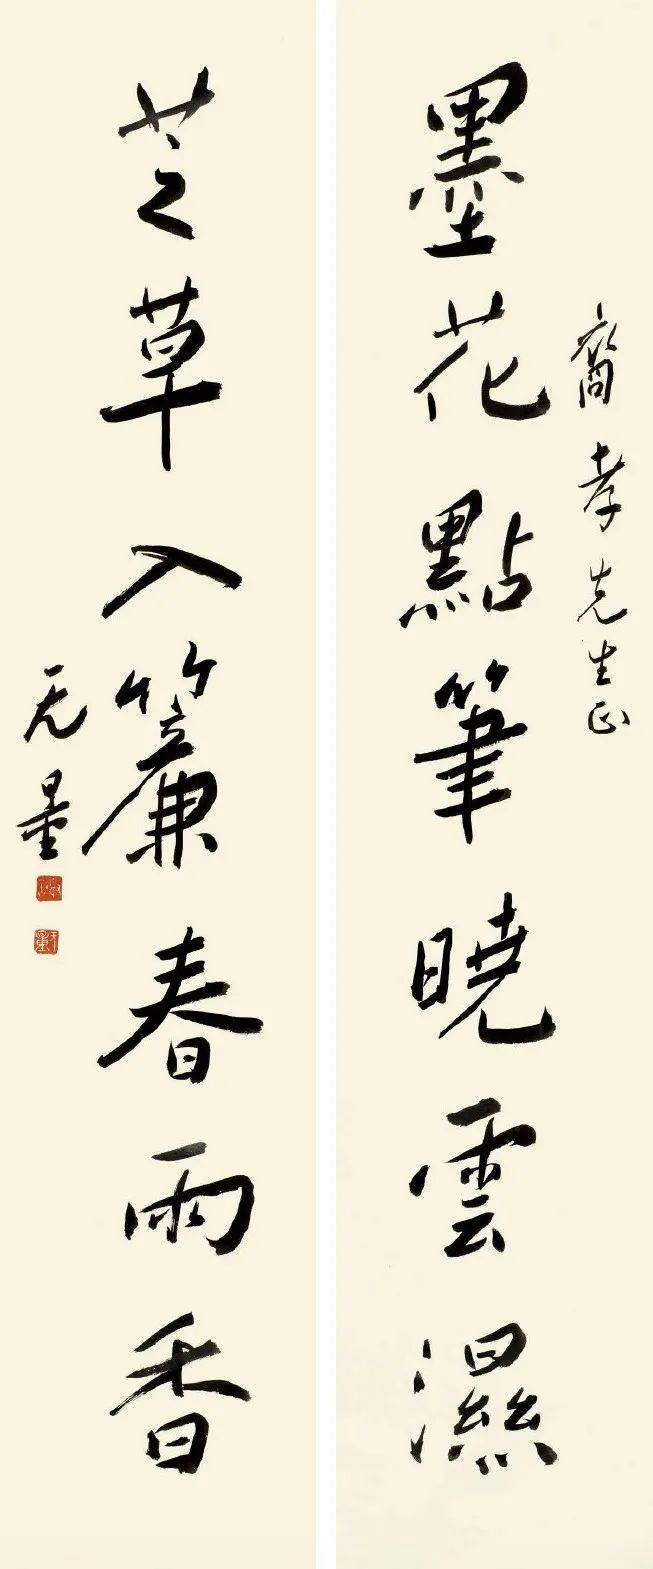 裔孝先生正
墨花點筆曉雲濕
芝草入簾春雨香
无量